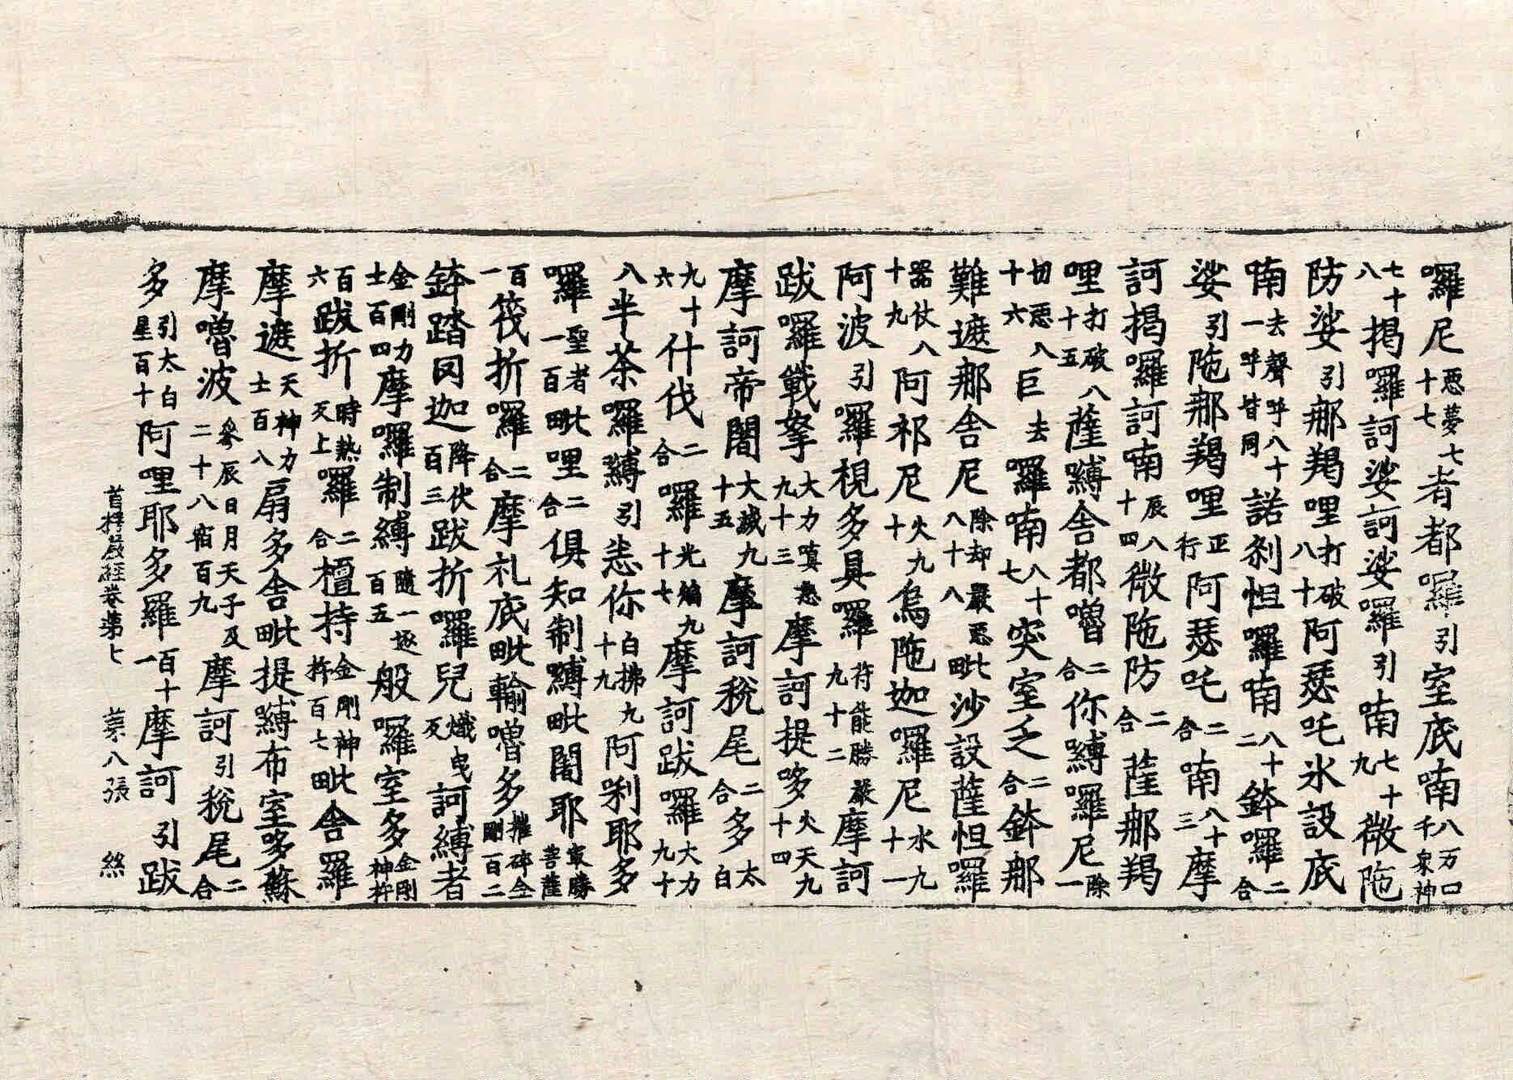 囉尼惡夢七十七者都囉引室底喃八万口千衆神
七十八揭囉訶娑訶娑囉引喃七十九微陁
防娑引那羯哩打破八十阿瑟吒氷設底
喃去聲呼八十一呼皆同諾剎怛囉喃八十二鉢囉二合
娑引陁那羯哩正行阿瑟吒二合喃八十三摩
訶揭囉訶喃辰八十四微陁防二合薩那羯
哩打破八十五薩縛舍都嚕二合你縛囉尼除一
切惡八十六巨去囉喃八十七突室乏二合鉢那
難遮那舍尼除却嚴惡八十八毗沙設薩怛囉
器仗八十九阿祁尼火九十烏陁迦囉尼水九十一
阿波引囉視多具囉符能勝嚴九十二摩訶
跋囉戰拏大力嗔怒九十三摩訶提哆火天九十四
摩訶帝闍大減九十五摩訶稅尾二合多太白
九十六什伐二合囉光焰九十七摩訶跋囉大力九十
八半茶囉縛引悉你白拂九十九阿唎耶多
囉聖者一百毗哩二合俱知制縛毗闍耶最勝菩薩
百一筏折囉二合摩礼底毗輸嚕多摧碎金剛百二
鉢踏罔迦降伏百三跋折囉兒熾曳反訶縛者
金剛力士百四摩囉制縛隨一逐百五般囉室多金剛神杵
百六跋折時熱反上囉二合檀持金剛神杵百七毗舍羅
摩遮天神力士百八扇多舍毗提縛布室哆蘇
摩嚕波參辰日月天子及二十八宿百九摩訶引稅尾二合
多引太白星百十阿哩耶多羅百十一摩訶引跋
首楞嚴經卷第七 第八張 絲